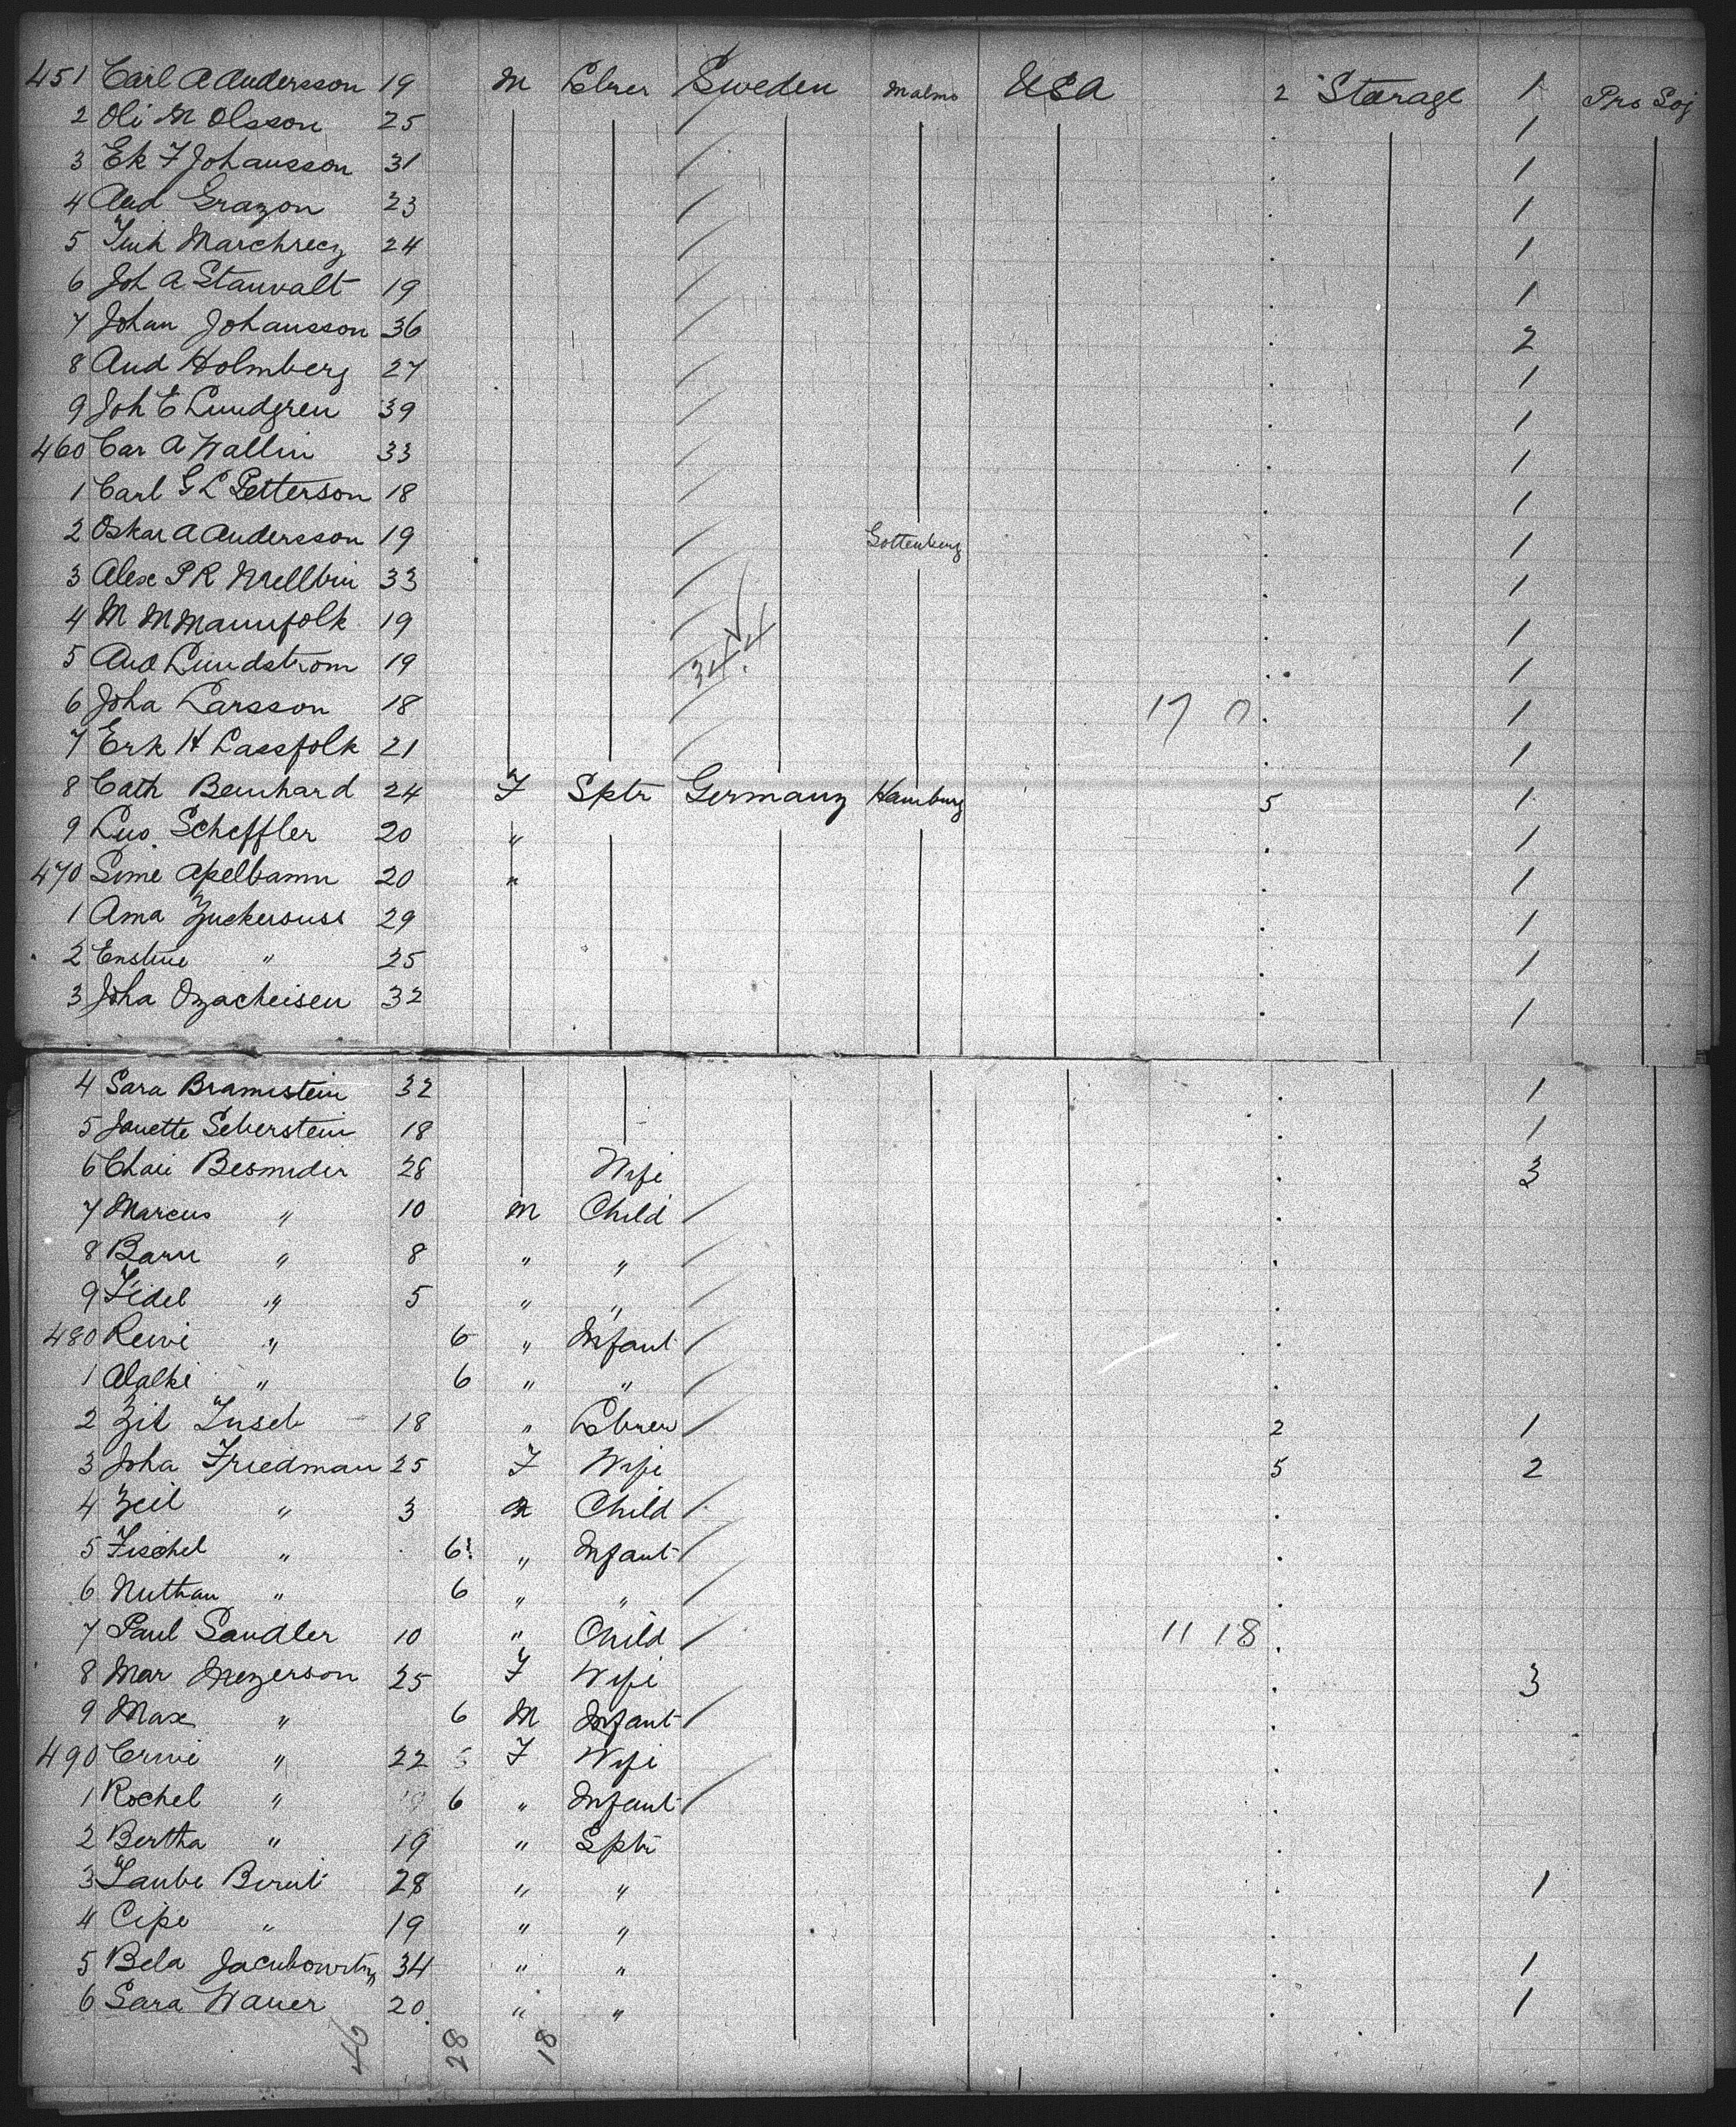 451 Carl A Andersson 19 M Lbrer Sweden Malmo USA 2 Steerage 1 Pro Soj
2 Oli M Olsson 25 1
3 Ek F Johansson 31 1
4 And Grazon 23 1
5 Marchrecz 24 1
6 Joh A Stanvalt 19 1
7 Johan Johansson 36 2
8 And Holmberg 27 1
9 Joh E Lundgren 39 1
460 Car A Wallin 33 1
1 Carl G L Petterson 18 1
2 Oskar A Andersson 19 Gottenberg 1
3 Alex P R Mellbin 33 1
4 M M Mannfolk 19 1
5 And Lundstrom 19 344 1
6 Joha Larsson 18 17 0 1
7 Erk H Lassfolk 21 1
8 Cath Bernhard 24 F Sptr Germany Hamburg 5 1
9 Lus Scheffler 20 " 1
470 Sime Apelbamm 20 " 1
1 Ama Zuckersuss 29 1
2 Enstine " 25 1
3 Joha Ozacheisen 32 1
4 Sara Bramstein 32 1
5 Janette Seberstein 18 1
6 Chaie Besmider 28 Wife 3
7 Marcus " 10 M Child
8 Baru " 8 " "
9 Fidel " 5 " "
480 Rewi " 6 " Infant
1 Malke " 6 " "
2 Zil Insel 18 " Lbrer 2 1
3 Joha Friedman 25 F Wife 5 2
4 Zeil " 3 M Child
5 Fischel " 6 " Infant
6 Nuthan " 6 " "
7 Paul Sandler 10 " Child 11 18
8 Mar Mezerson 25 F Wife 3
9 Max " 6 M Infant
490 Erwi " 22 F Wife
1 Rochel " 6 " Infant
2 Bertha " 19 " Sptr
3 Taube Birnt 28 " " 1
4 Cipe " 19 " "
5 Bela Jacubowitz 34 " " 1
6 Sara Waner 20 " " 1
46 28 18